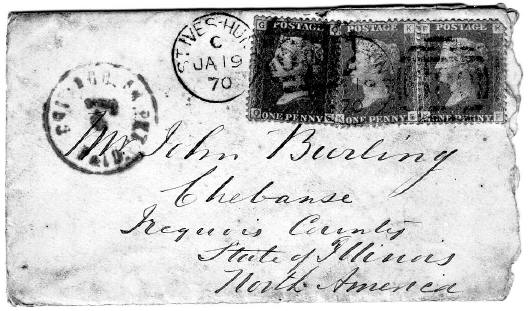 ST IVES-HUN
C
JA 19
70
POSTAGE
ONE PENNY
POSTAGE
ONE PENNY
POSTAGE
ONE PENNY
70
Mr John Burling
Chebanse
Irequois County
State of Illinois
North America